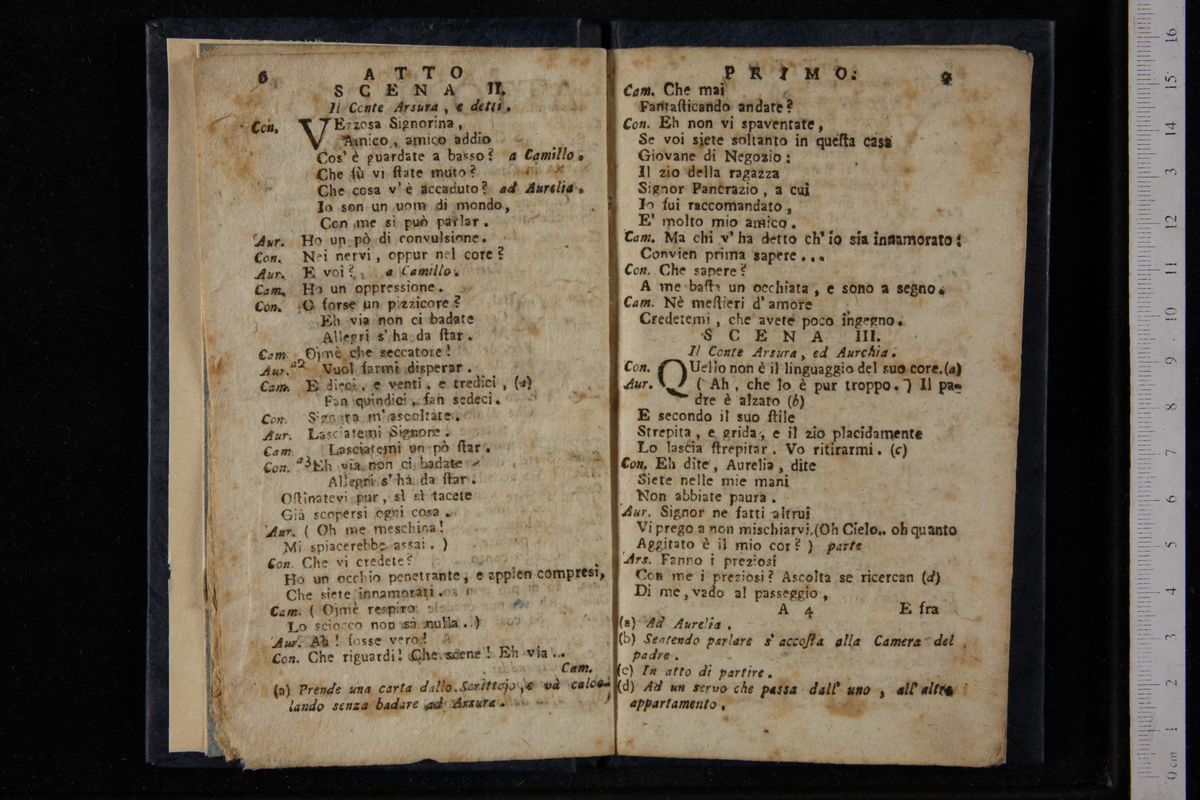 6 ATTO
SCENA II.
Il Conte Arsura, e detti.
Con. VEzzosa Signorina,
Amico, amico addio
Cos' è guardate a basso? a Camillo.
Che sù vi ſtate muto?
Che cosa v' è accaduto? ad Aurelia.
Io son un uom di mondo,
Con me si può parlar.
Aur. Ho un pò di convulsione.
Con. Nei nervi, oppur nel core?
Aur. E voi? a Camillo.
Cam. Ho un oppressione.
Con. O forse un pizzicore?
Eh via non ci badate
Allegri s' ha da ſtar.
Cam. Ojmè che seccatore!
Aur. a2 Vuol farmi disperar.
Cam. E dieci, e venti, e tredici, (a)
Fan quindici, fan sedeci.
Con. Signora m' ascoltate.
Aur. Lasciatemi Signore.
Cam. Lasciatemi un pò ſtar.
Con. a3 Eh via non ci badate
Allegri s' ha da ſtar.
Oſtinatevi pur, sì sì tacete
Già scopersi ogni cosa.
Aur. ( Oh me meschina!
Mi spiacerebbe assai. )
Con. Che vi credete?
Ho un occhio penetrante, e appien compresi,
Che siete innamorati.
Cam. ( Ojmè respiro
Lo sciocco non sà nulla. )
Aur. Ah! fosse vero!
Con. Che riguardi! Che scene! Eh via ..
Cam.
(a) Prende una carta dallo Scrittojo, e và calco-
lando senza badare ad Arsura.
PRIMO. 7
Cam. Che mai
Fantaſticando andate?
Con. Eh non vi spaventate,
Se voi siete soltanto in queſta casa
Giovane di Negozio:
Il zio della ragazza
Signor Pancrazio, a cui
Io fui raccomandato,
E' molto mio amico.
Cam. Ma chi v' ha detto ch' io sia innamorato?
Convien prima sapere...
Con. Che sapere?
A me baſta un occhiata, e sono a segno.
Cam. Nè meſtieri d' amore
Credetemi, che avete poco ingegno.
SCENA III.
Il Conte Arsura, ed Aurelia.
Con. QUello non è il linguaggio del suo core. (a)
Aur. ( Ah, che lo è pur troppo. ) Il pa-
dre è alzato (b)
E secondo il suo ſtile
Strepita, e grida, e il zio placidamente
Lo lascia ſtrepitar. Vo ritirarmi. (c)
Con. Eh dite, Aurelia, dite
Siete nelle mie mani
Non abbiate paura.
Aur. Signor ne fatti altrui
Vi prego a non mischiarvi. (Oh Cielo.. oh quanto
Aggitato è il mio cor? ) parte
Ars. Fanno i preziosi
Con me i preziosi? Ascolta se ricercan (d)
Di me, vado al passeggio,
A 4 E fra
(a) Ad Aurelia.
(b) Sentendo parlare s' accoſta alla Camera del
padre.
(c) In atto di partire.
(d) Ad un servo che passa dall' uno, all' altro
appartamento.